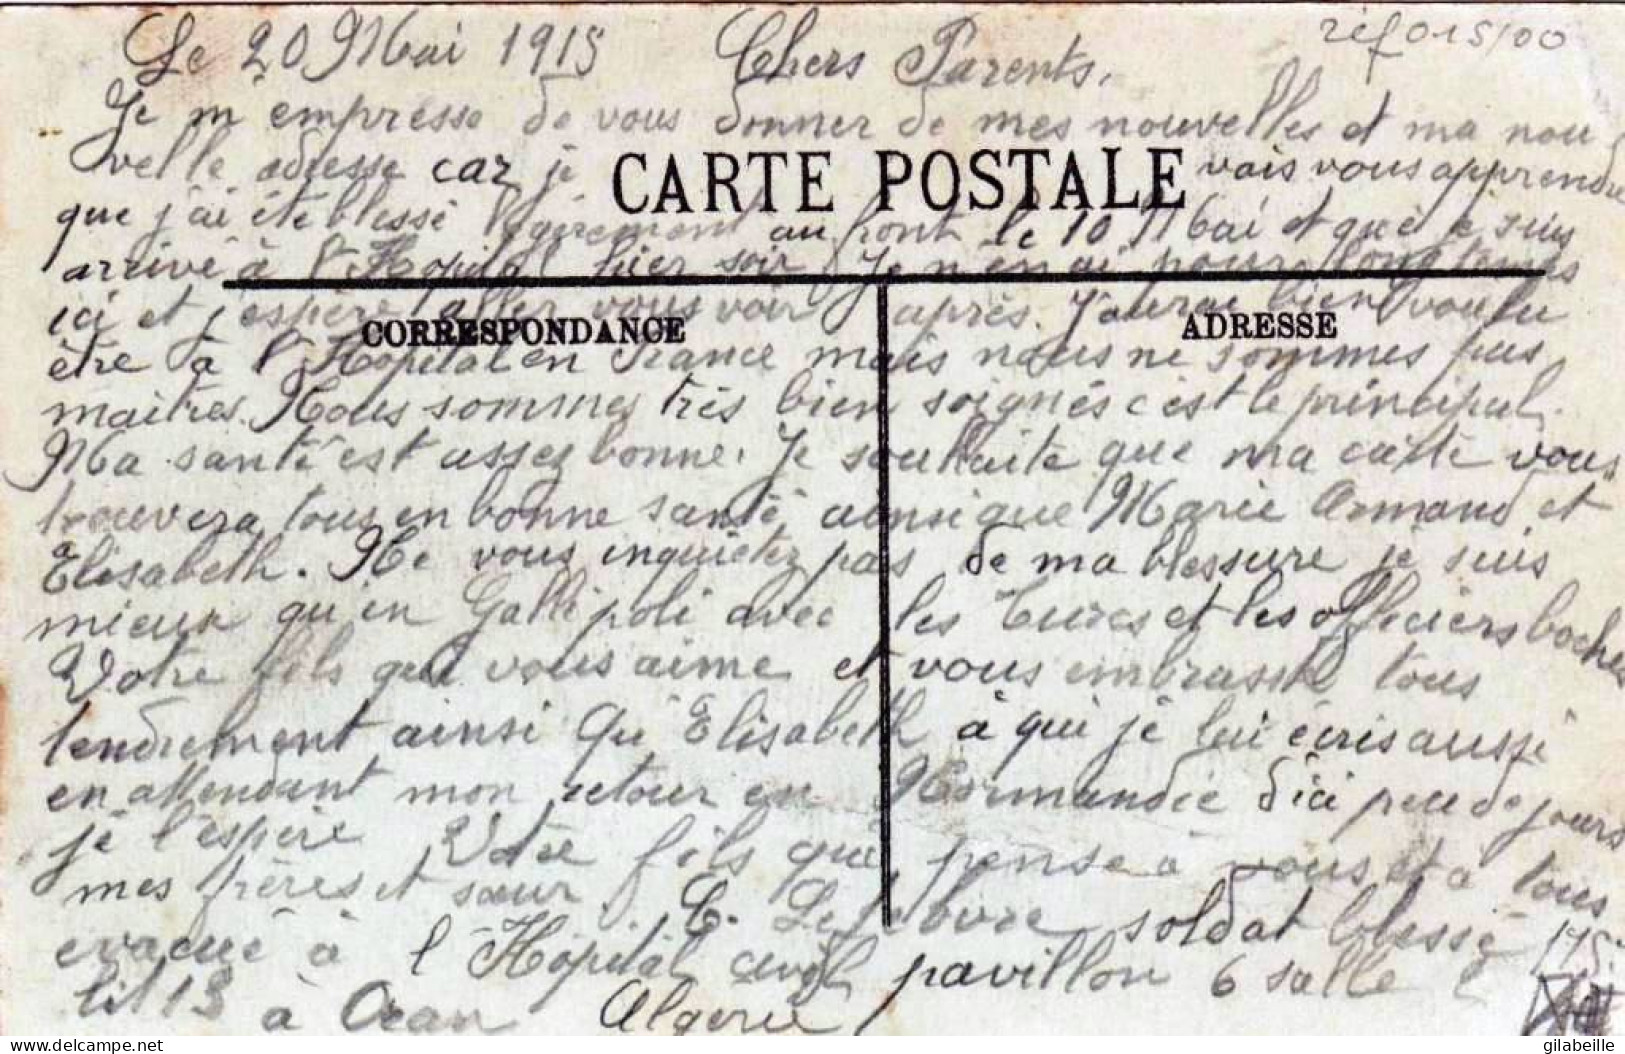 réf 015/00
Le 20 Mai 1915 Chers Parents,
Je m'empresse de vous donner de mes nouvelles et ma nou
velle adresse car je vais vous apprendre
CARTE POSTALE
que j'ai été blessé légèrement au front le 10 Mai et que je suis
arrivé à l'Hopital hier soir Je n'en ai pour longtemps
ici et j'espère aller vous voir après. J'aurai bien voulu
CORRESPONDANCE
ADRESSE
être à l'Hopital en France mais nous ne sommes pas
maitres. Nous sommes très bien soignés c'est le principal.
Ma santé est assez bonne. Je souhaite que ma carte vous
trouvera tous en bonne santé ainsi que Marie Armand et
Elisabeth. Ne vous inquietez pas de ma blessure je suis
mieux qu'en Gallipoli avec les Turcs et les officiers boches
Votre fils qui vous aime et vous embrasse tous
tendrement ainsi qu'Elisabeth à qui je lui écris aussi
en attendant mon retour en Normandie d'ici peu de jours
je l'espère Votre fils qui pense à vous et à tous
mes frères et sœur. C. Lefebvre soldat blessé 175
evacué à l'Hôpital civil pavillon 6 salle
lit 13 à Oran Algerie
gilabeille